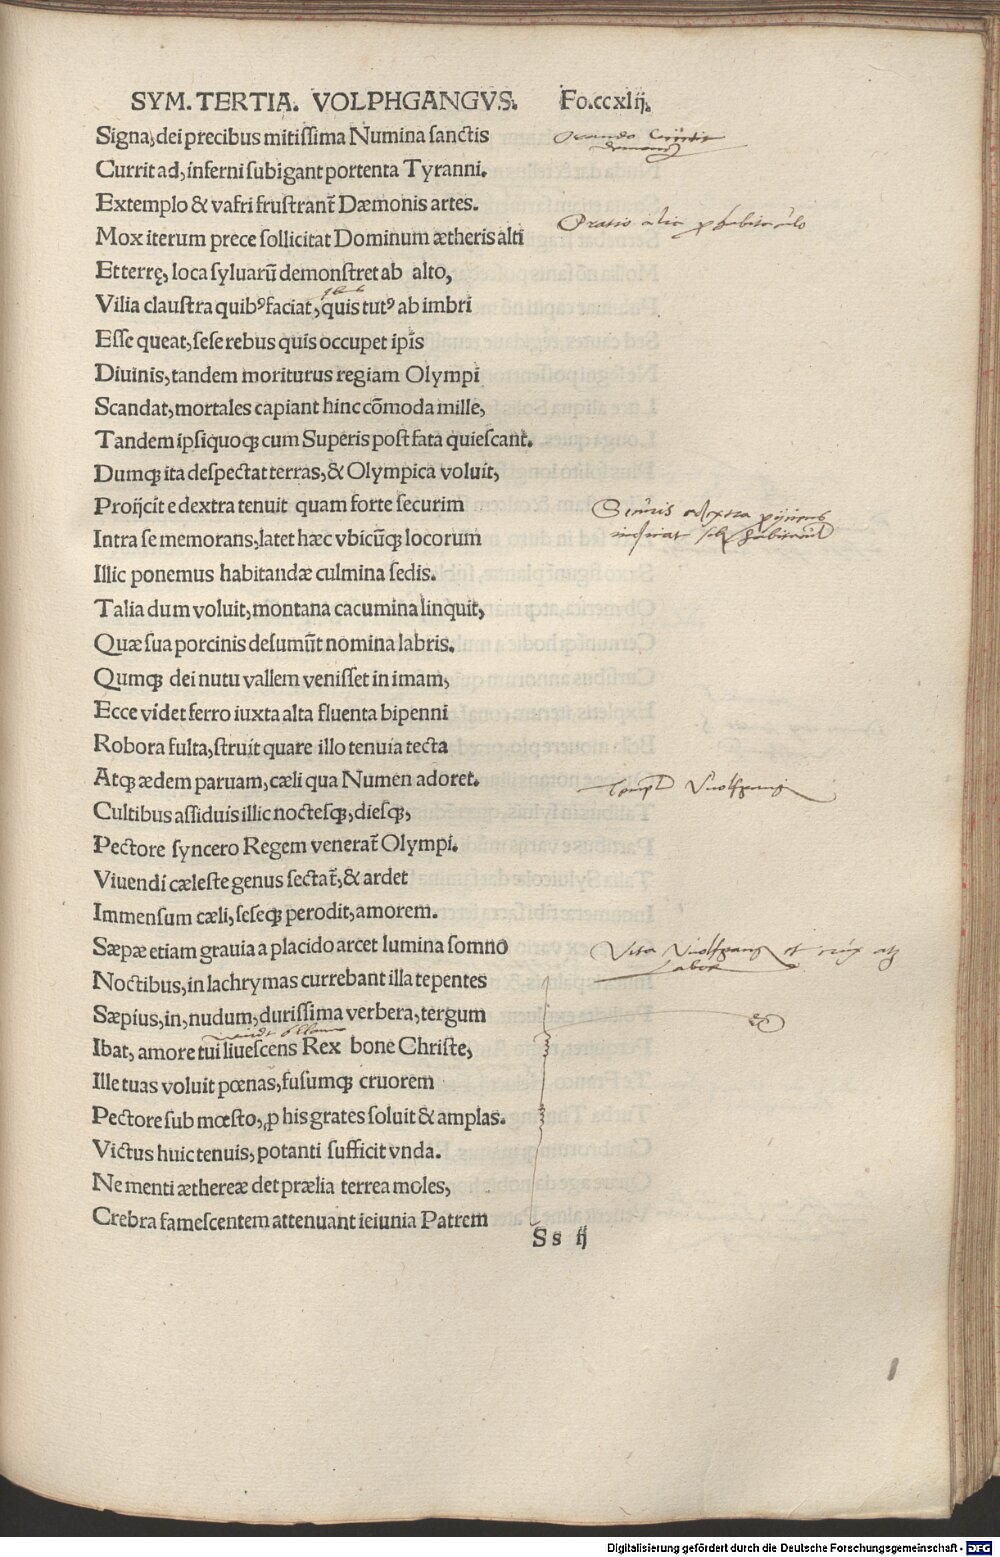 SYM. TERTIA. VOLPHGANGVS. Fo.ccxlij.
Signa, dei precibus mitissima Numina sanctis
Currit ad, inferni subigant portenta Tyranni.
Extemplo & vafri frustrant᷑ Dæmonis artes.
Mox iterum prece sollicitat Dominum ætheris alti
Et terrę, loca syluarū demonstret ab alto,
Vilia claustra quibꝰ faciat, quis tutꝰ ab imbri
Esse queat, sese rebus quis occupet ip̄is
Diuinis, tandem moriturus regiam Olympi
Scandat, mortales capiant hinc cōmoda mille,
Tandem ipsi quoqꝫ cum Superis post fata quiescant.
Dumqꝫ ita despectat terras, & Olympica voluit,
Proijcit e dextra tenuit quam forte securim
Intra se memorans, latet hæc vbicūqꝫ locorum
Illic ponemus habitandæ culmina sedis.
Talia dum voluit, montana cacumina linquit,
Quæ sua porcinis desumūt nomina labris.
Qumqꝫ dei nutu vallem venisset in imam,
Ecce videt ferro iuxta alta fluenta bipenni
Robora fulta, struit quare illo tenuia tecta
Atqꝫ ædem paruam, cæli qua Numen adoret.
Templ Vuolfgangi
Cultibus assiduis illic noctesqꝫ, diesqꝫ,
Pectore syncero Regem venerat᷑ Olympi.
Viuendi cæleste genus sectat᷑, & ardet
Immensum cæli, seseqꝫ perodit, amorem.
Sæpæ etiam grauia a placido arcet lumina somno
Vita Vuolfgangi et
Labor
Noctibus, in lachrymas currebant illa tepentes
Sæpius, in, nudum, durissima verbera, tergum
Ibat, amore tui liuescens Rex bone Christe,
Ille tuas voluit pœnas, fusumqꝫ cruorem
Pectore sub mœsto, ꝓ his grates soluit & amplas.
Victus huic tenuis, potanti sufficit vnda.
Ne menti æthereæ det prælia terrea moles,
Crebra famescentem attenuant ieiunia Patrem
Ss ij
Digitalisierung gefördert durch die Deutsche Forschungsgemeinschaft - DFG